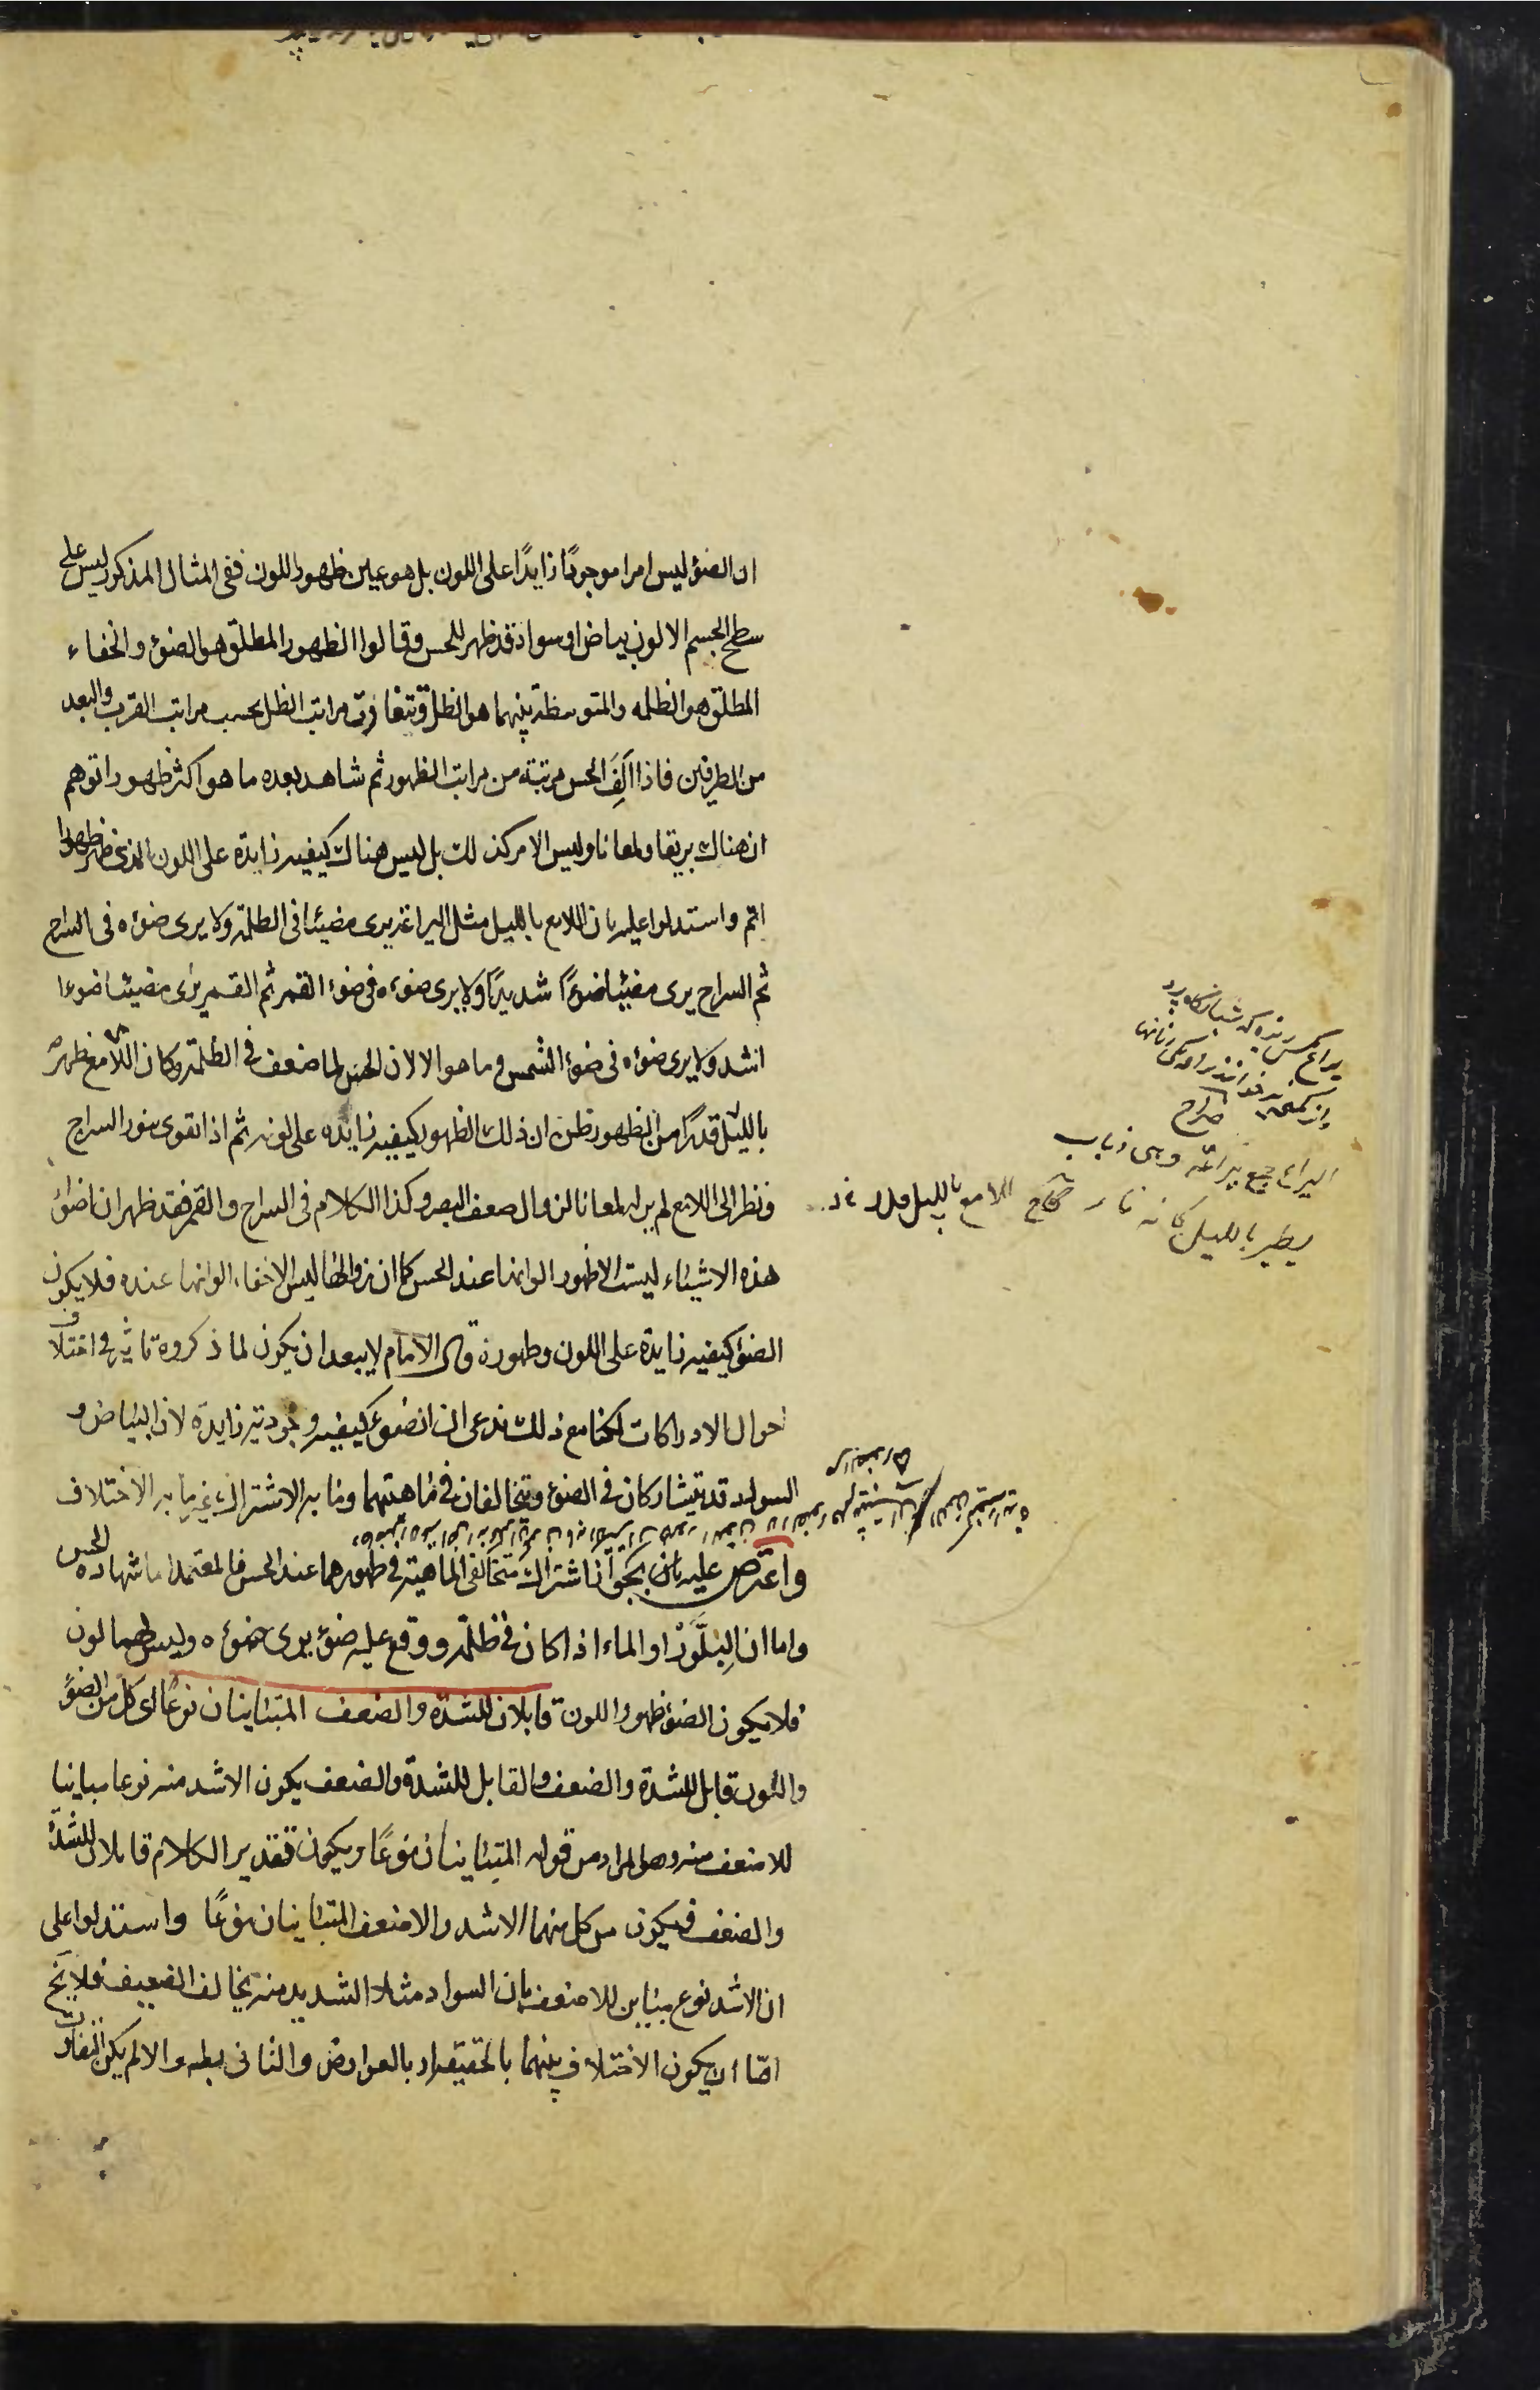 ان الضوء ليس امرا موجودًا زايدًا على اللون بل هو عين ظهور اللون ففى المثال المذكور ليس على
سطح الجسم الا لون بياض او سواد قد ظهر للحس وقالوا الظهور المطلق هو الضوء والخفاء
المطلق هو الظلمه والمتوسطة بينهما هو الظل وتتفاوت مراتب الظل بحسب مراتب القرب والبعد
من الطرفين فاذا اَلِفَ الحس مرتبة من مراتب الظهور ثم شاهد بعده ما هو اكثر ظهورا توهم
ان هناك بريقا ولمعانا وليس الامر كذلك بل ليس هناك كيفيه زايدة على اللون الذى ظهر ظهورا
اتم واستدلوا عليه بان اللامع بالليل مثل اليراعة يرى مضيئا فى الظلمة ولا يرى ضوءه فى السراج
ثم السراج يرى مضيئا ضوءًا شديدًا ولا يرى ضوءه فى ضوء القمر ثم القمر يرى مضيئا ضوءا
اشد ولا يرى ضوءه فى ضوء الشمس وما هو الا لان الحس لما ضعف فى الظلمة وكان اللامع ظهر
بالليل قدرًا من الظهور ظن ان ذلك الظهور كيفيه زايده على لونه ثم اذا تقوى بنور السراج
ونظر الى اللامع لم ير له لمعانا لزوال ضعف البصر وكذا الكلام فى السراج والقمر فقد ظهر ان اضواء
هذه الاشياء ليست الا ظهور الوانها عند الحس كما ان زوالها ليس الا خفاء الوانها عنده فلا يكون
الضوء كيفيه زايدة على اللون وظهوره قال الامام لا يبعد ان يكون لما ذكروه تاثير فى اختلاف
احوال الادراكات لكنا مع ذلك ندعى ان الضوء كيفيه وجودية زايدة لان البياض و
السواد قد يتشاركان فى الضوء ويتخالفان فى ماهيتهما وما به الاشتراك غير ما به الاختلاف
واعترض عليه بان يجوز اشتراك متخالفى الماهية فى ظهورهما عند الحس فالمعتمد اما شهادة الحس
واما ان البِلَّوْر او الماء اذا كان فى ظلمة ووقع عليه ضوء يرى ضوءه وليس لهما لون
فلا يكون الضوء ظهور اللون قابلان للشدة والضعف المتباينان نوعًا اى كل من الضوء
واللون قابل للشدة والضعف والقابل للشدة والضعف يكون الاشد منه نوعا مباينا
للاضعف منه وهو المراد من قوله المتباينان نوعًا ويكون تقدير الكلام قابلان للشدة
والضعف فيكون من كل منهما الاشد والاضعف المتباينان نوعًا واستدلوا على
ان الاشد نوع مباين للاضعف بان السواد مثلا الشديد منه يخالف الضعيف فلا يخ
امّا أن يكون الاختلاف بينهما بالحقيقة او بالعوارض والثانى بط والا لم يكن التفاوت
اليراع جمع يراعة وهى ذباب
يطير بالليل كانه نار صحاح
اللامع بالليل